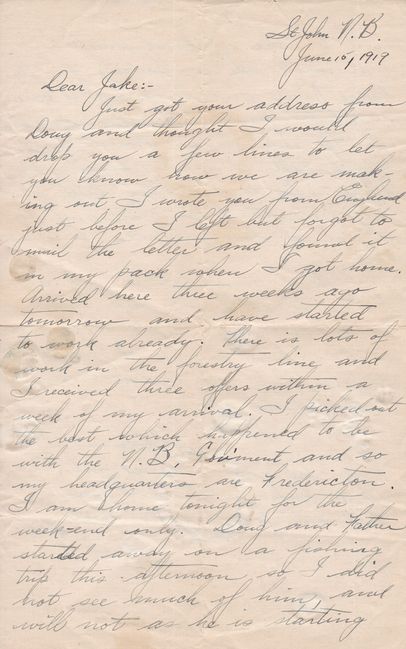 St John N. B.
June 15, 1919
Dear Jake:-
Just got your address from
Doug and thought I would
drop you a few lines to let
you know how we are mak-
ing out. I wrote you from England
just before I left but forgot to
mail the letter and found it
in my pack when I got home.
Arrived here three weeks ago
tomorrow and have started
to work already. There is lots of
work in the forestry line and
I received three offers within a
week of my arrival. I picked out
the best which happened to be
with the N.B. Gov'ment and so
my headquarters are Fredericton.
I am home tonight for the
week-end only. Doug and Father
started away on a fishing
trip this afternoon so I did
not see much of him, and
will not as he is starting